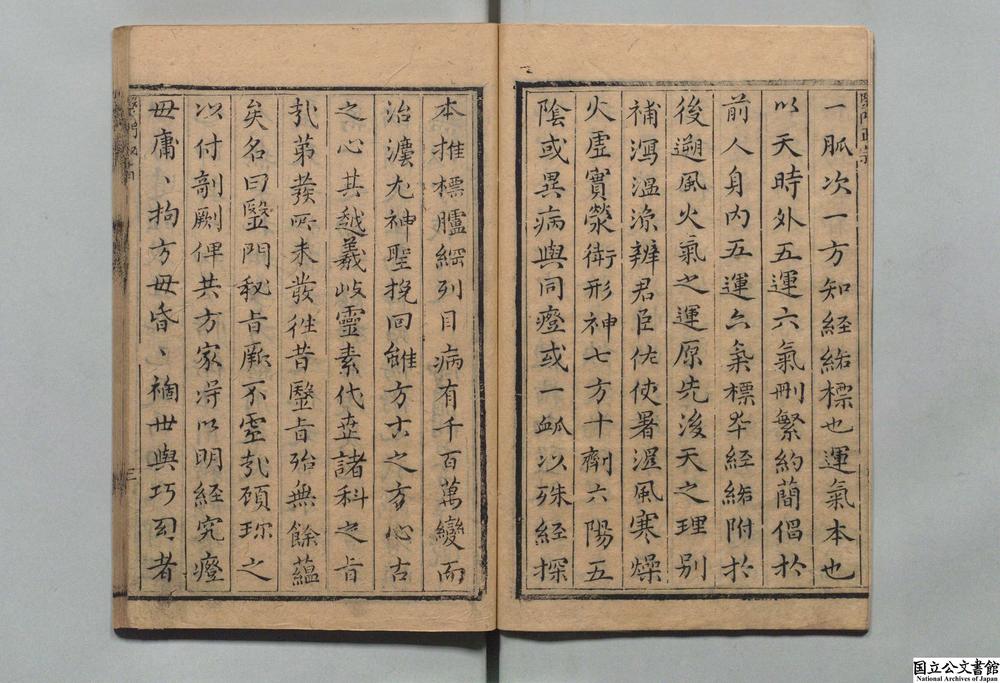 一脈次一方知経絡標也運氣本也
以天時外五運六氣刪繁約簡倡於
前人身內五運六氣標本経絡附於
後遡風火氣之運原先後天之理別
補瀉溫涼辨君臣佐使暑溼風寒燥
火虛實滎衛形神七方十劑六陽五
陰或異病與同癥或一脈以殊経探
本推標臚綱列目病有千百萬變而
治灋尤神聖挽回雖方古之方心古
之心其越羲岐靈素代莖諸科之旨
㢤第發所未發徃昔毉旨殆無餘蘊
矣名曰毉門秘旨厥不虛㢤碩珎之
以付剞劂俾共方家淂以明経究癥
毋庸、拘方毋昏、禍世與巧司者
毉門秘旨
三
国立公文書館
National Archives of Japan